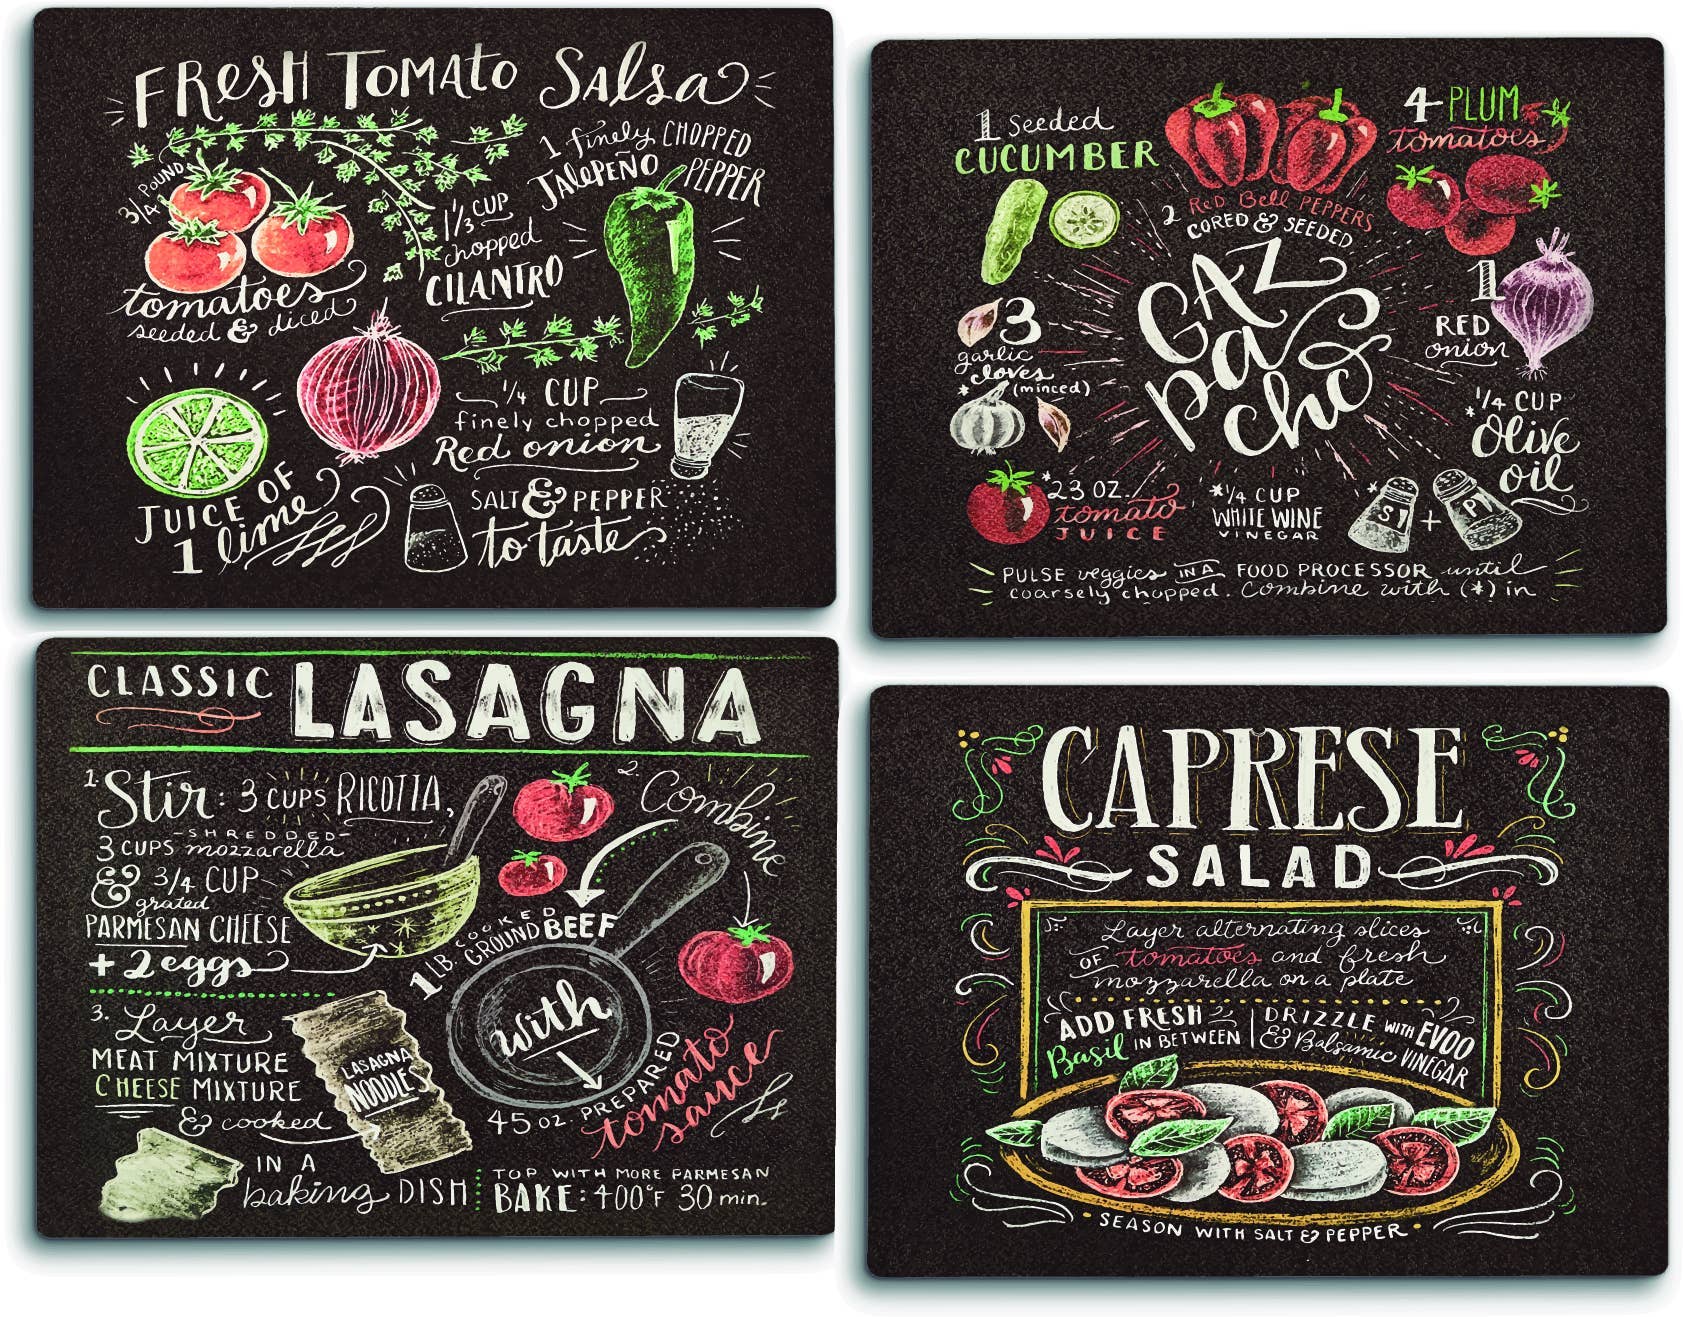 FRESH TOMATO Salsa
3/4 POUND
tomatoes
seeded & diced
1/3 CUP
chopped
CILANTRO
1 finely CHOPPED
JALEPEÑO PEPPER
JUICE OF
1 lime
1/4 CUP
finely chopped
Red onion
SALT & PEPPER
to taste
1 Seeded
CUCUMBER
2 Red Bell PEPPERS
CORED & SEEDED
4 PLUM
tomatoes
GAZ
pa
cho
3
garlic
cloves
* (minced)
1
RED
onion
*1/4 CUP
Olive
oil
*23 OZ.
tomato
JUICE
*1/4 CUP
WHITE WINE
VINEGAR
*
+
PULSE veggies IN A FOOD PROCESSOR until
coarsely chopped. Combine with (*) in
CLASSIC LASAGNA
1. Stir: 3 CUPS RICOTTA,
3 CUPS -SHREDDED- mozzarella
& 3/4 CUP
grated
PARMESAN CHEESE
+ 2 eggs
2. Combine
1 LB. COOKED
GROUND BEEF
with
45 oz. PREPARED
tomato
sauce
3. Layer
MEAT MIXTURE
CHEESE MIXTURE
& cooked
LASAGNA
NOODLES
IN A
baking DISH
TOP WITH MORE PARMESAN
BAKE: 400°F 30 min.
CAPRESE
SALAD
Layer alternating slices
OF tomatoes and fresh
mozzarella on a plate
ADD FRESH
Basil IN BETWEEN
DRIZZLE WITH EVOO
& Balsamic VINEGAR
· SEASON WITH SALT & PEPPER ·